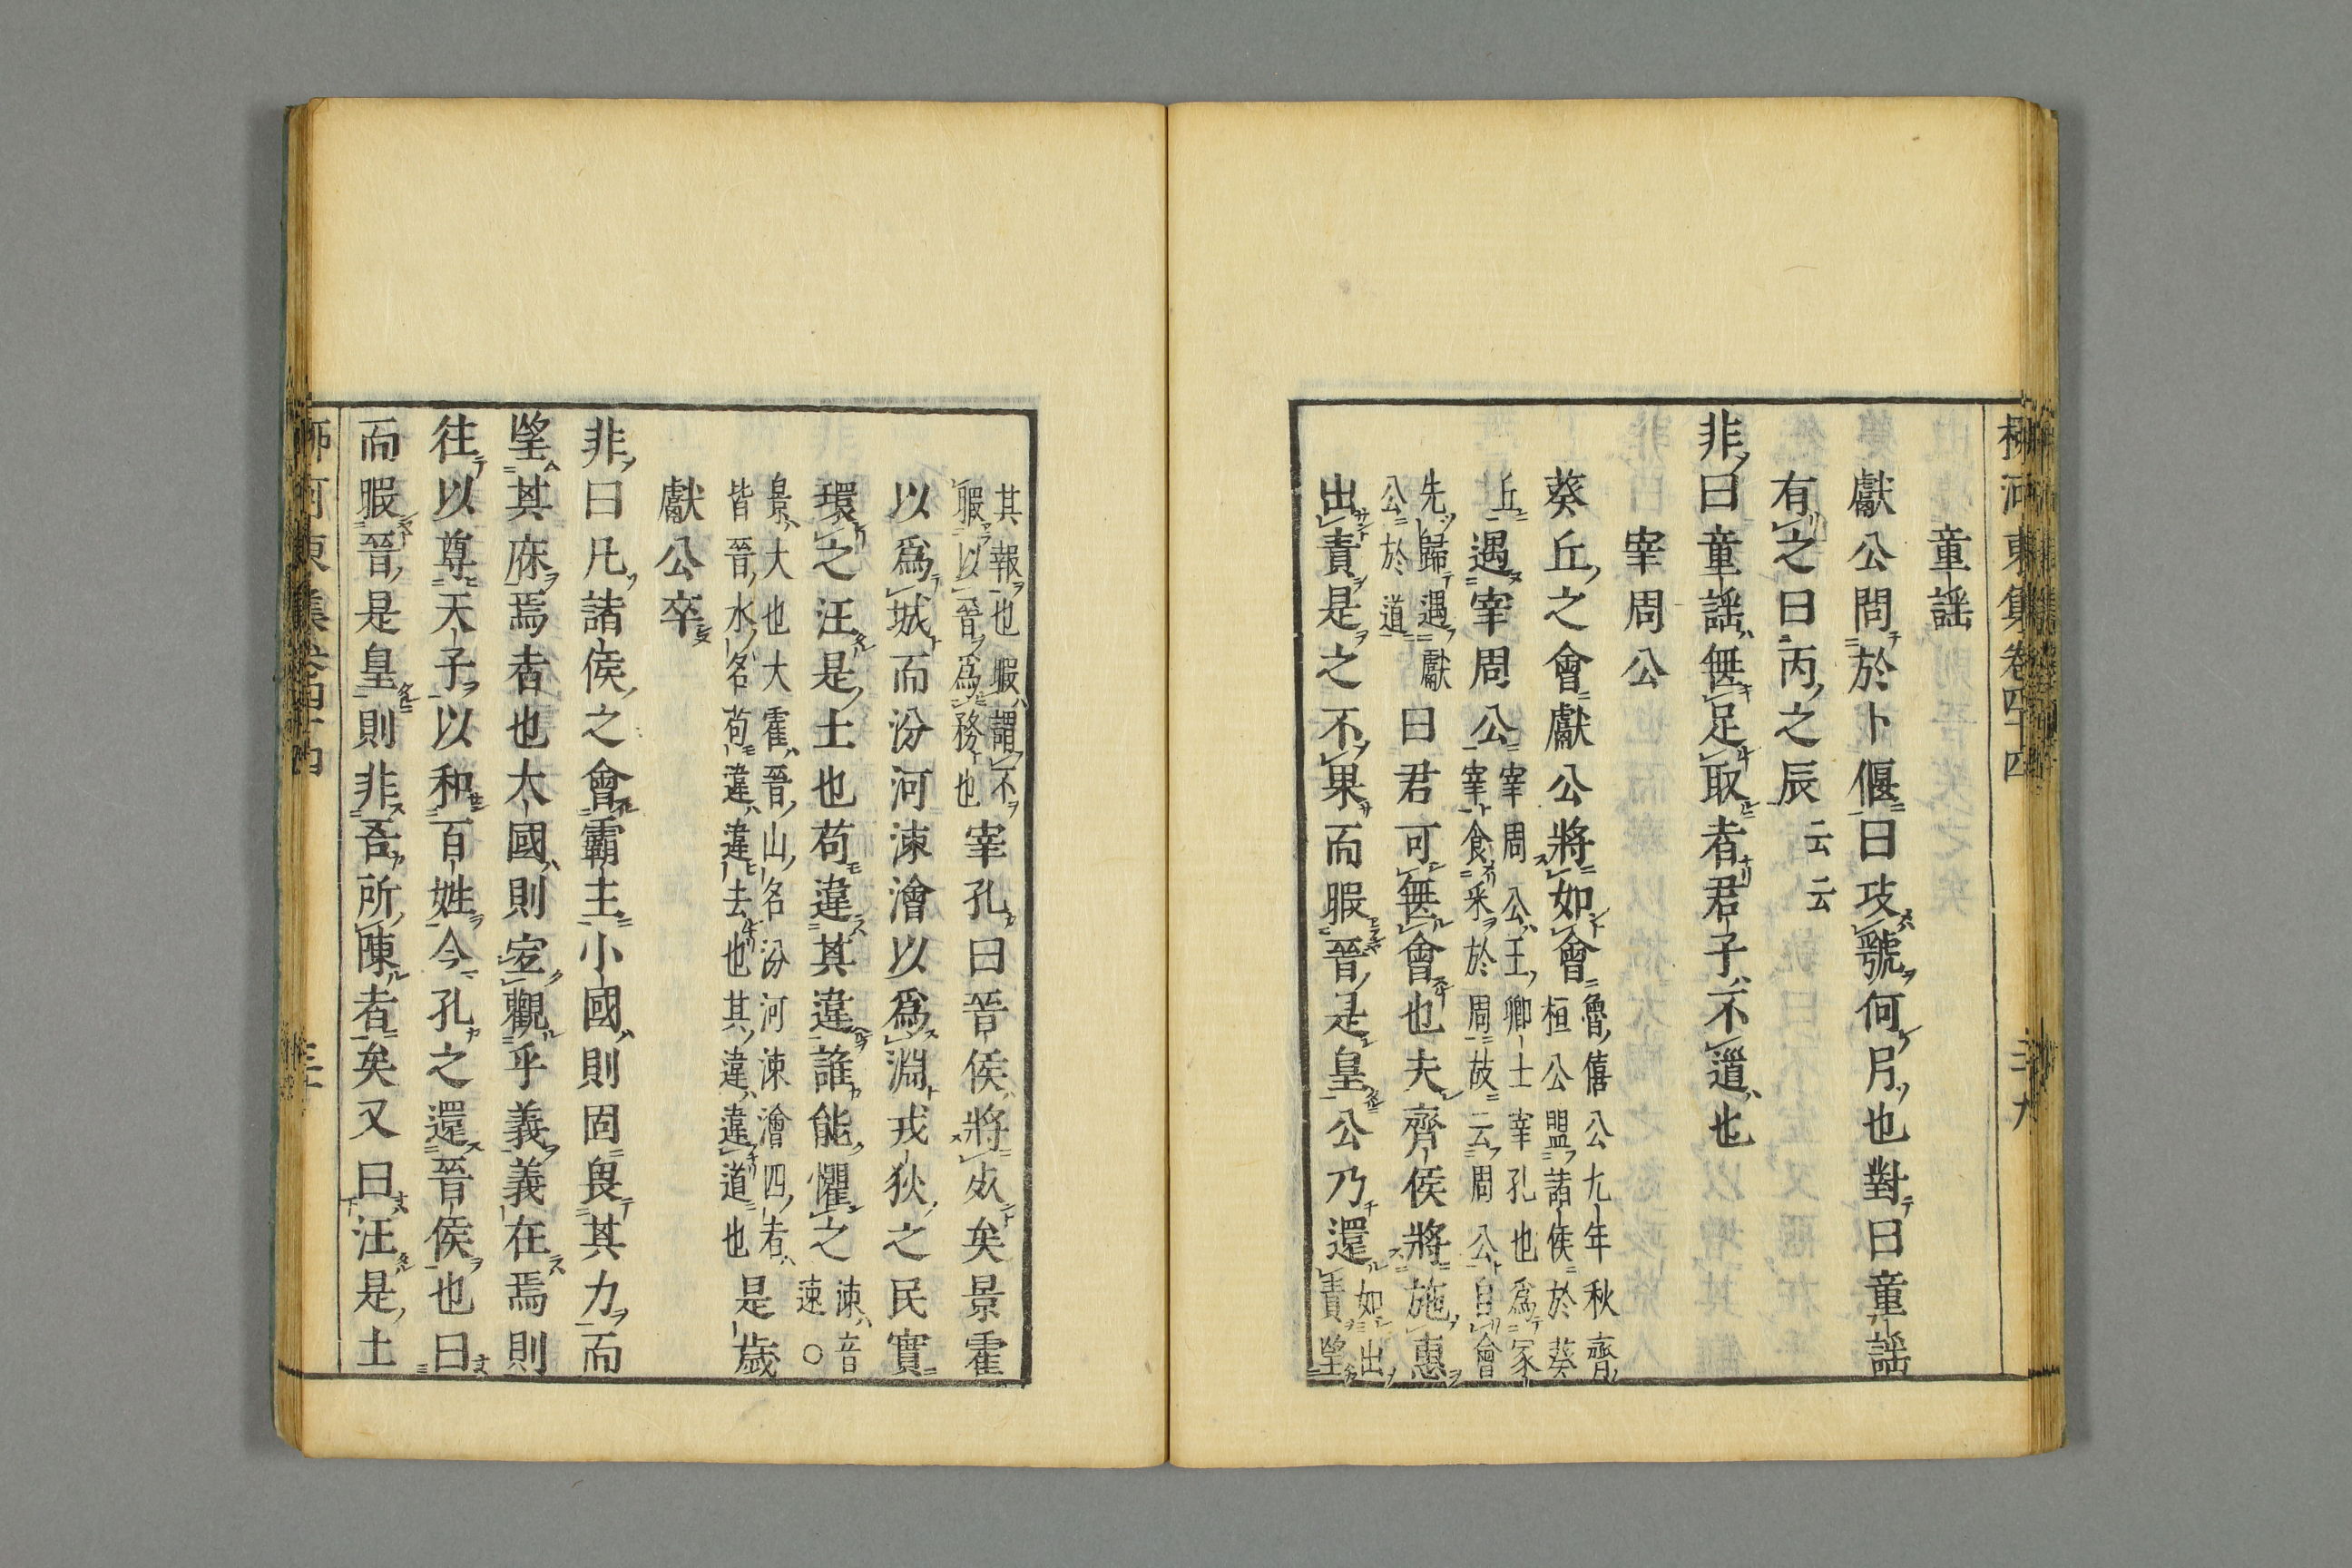 柳河東集卷四十四
童謡
獻公問於卜偃曰攻虢何月也對曰童謡
有之曰丙之辰云云
非曰童謡無足取者君子不道也
宰周公
葵丘之會獻公將如會魯僖公九年秋齊桓公盟諸侯於葵
丘遇宰周公宰周公王卿士宰孔也爲冢宰食采於周故云周公自會
先歸遇獻公於道曰君可無會也夫齊侯將施惠
出責是之不果而暇晉是皇公乃還如出責望
其報也暇謂不暇以晉爲務也宰孔曰晉侯將死矣景霍
以爲城而汾河涑澮以爲淵戎狄之民實
環之汪是土也苟違其違誰能懼之涑音速○
景大也大霍晉山名汾河涑澮四者皆晉水名苟違違去也其違違道也是歲
獻公卒
非曰凡諸侯之會霸主小國則固畏其力而
望其庥焉者也大國則宜觀乎義義在焉則
往以尊天子以和百姓今孔之還晉侯也曰
而暇晉是皇則非吾所陳者矣又曰汪是土
柳河東集卷四十四